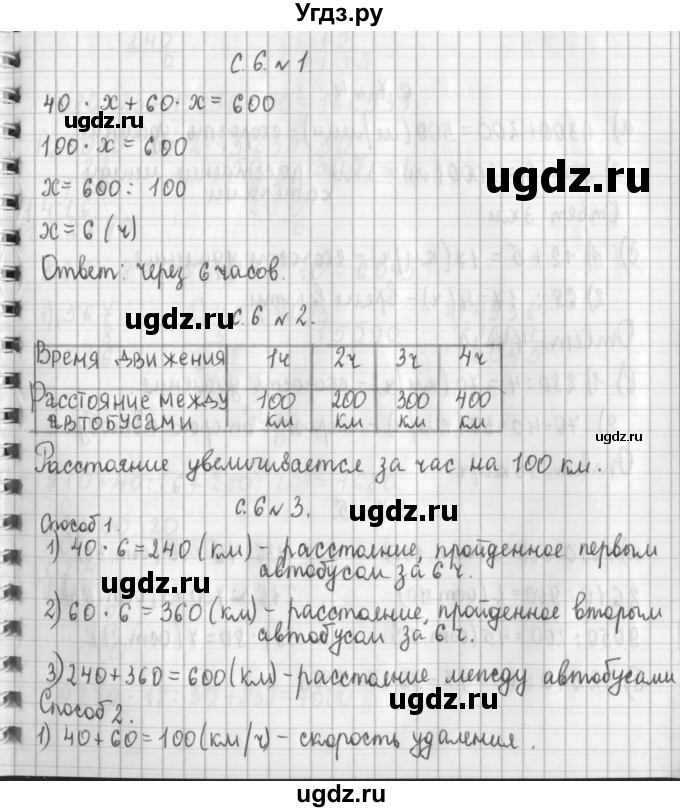 Угдз.ру
с. 6. № 1.
40 · x + 60 · x = 600
ugdz.ru
100 · x = 600
ugdz.ru
x = 600 : 100
x = 6 (ч)
Ответ: через 6 часов.
ugdz.ru
с. 6 № 2.
Время движения 1ч 2ч 3ч 4ч
Расстояние между автобусами 100 км 200 км 300 км 400 км
ugdz.ru
Расстояние увеличивается за час на 100 км.
с. 6 № 3.
ugdz.ru
Способ 1.
1) 40 · 6 = 240 (км) - расстояние, пройденное первым
автобусом за 6 ч.
ugdz.ru
2) 60 · 6 = 360 (км) - расстояние, пройденное вторым
автобусом за 6 ч.
ugdz.ru
3) 240 + 360 = 600 (км) - расстояние между автобусами
Способ 2.
ugdz.ru
1) 40 + 60 = 100 (км/ч) - скорость удаления.
ugdz.ru